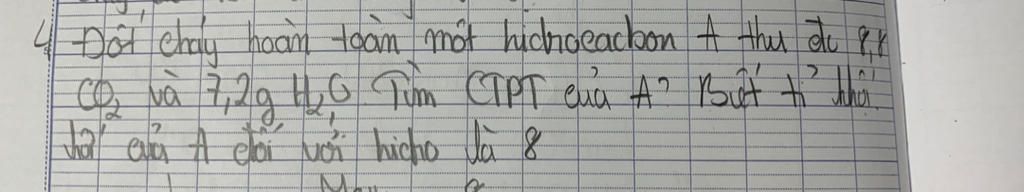 4, Đốt cháy hoàn toàn một hidrocacbon A thu đc 8,8
CO2 và 7,2g H2O Tìm CTPT của A? Biết tỉ khối
hơi của A đối với hidro là 8